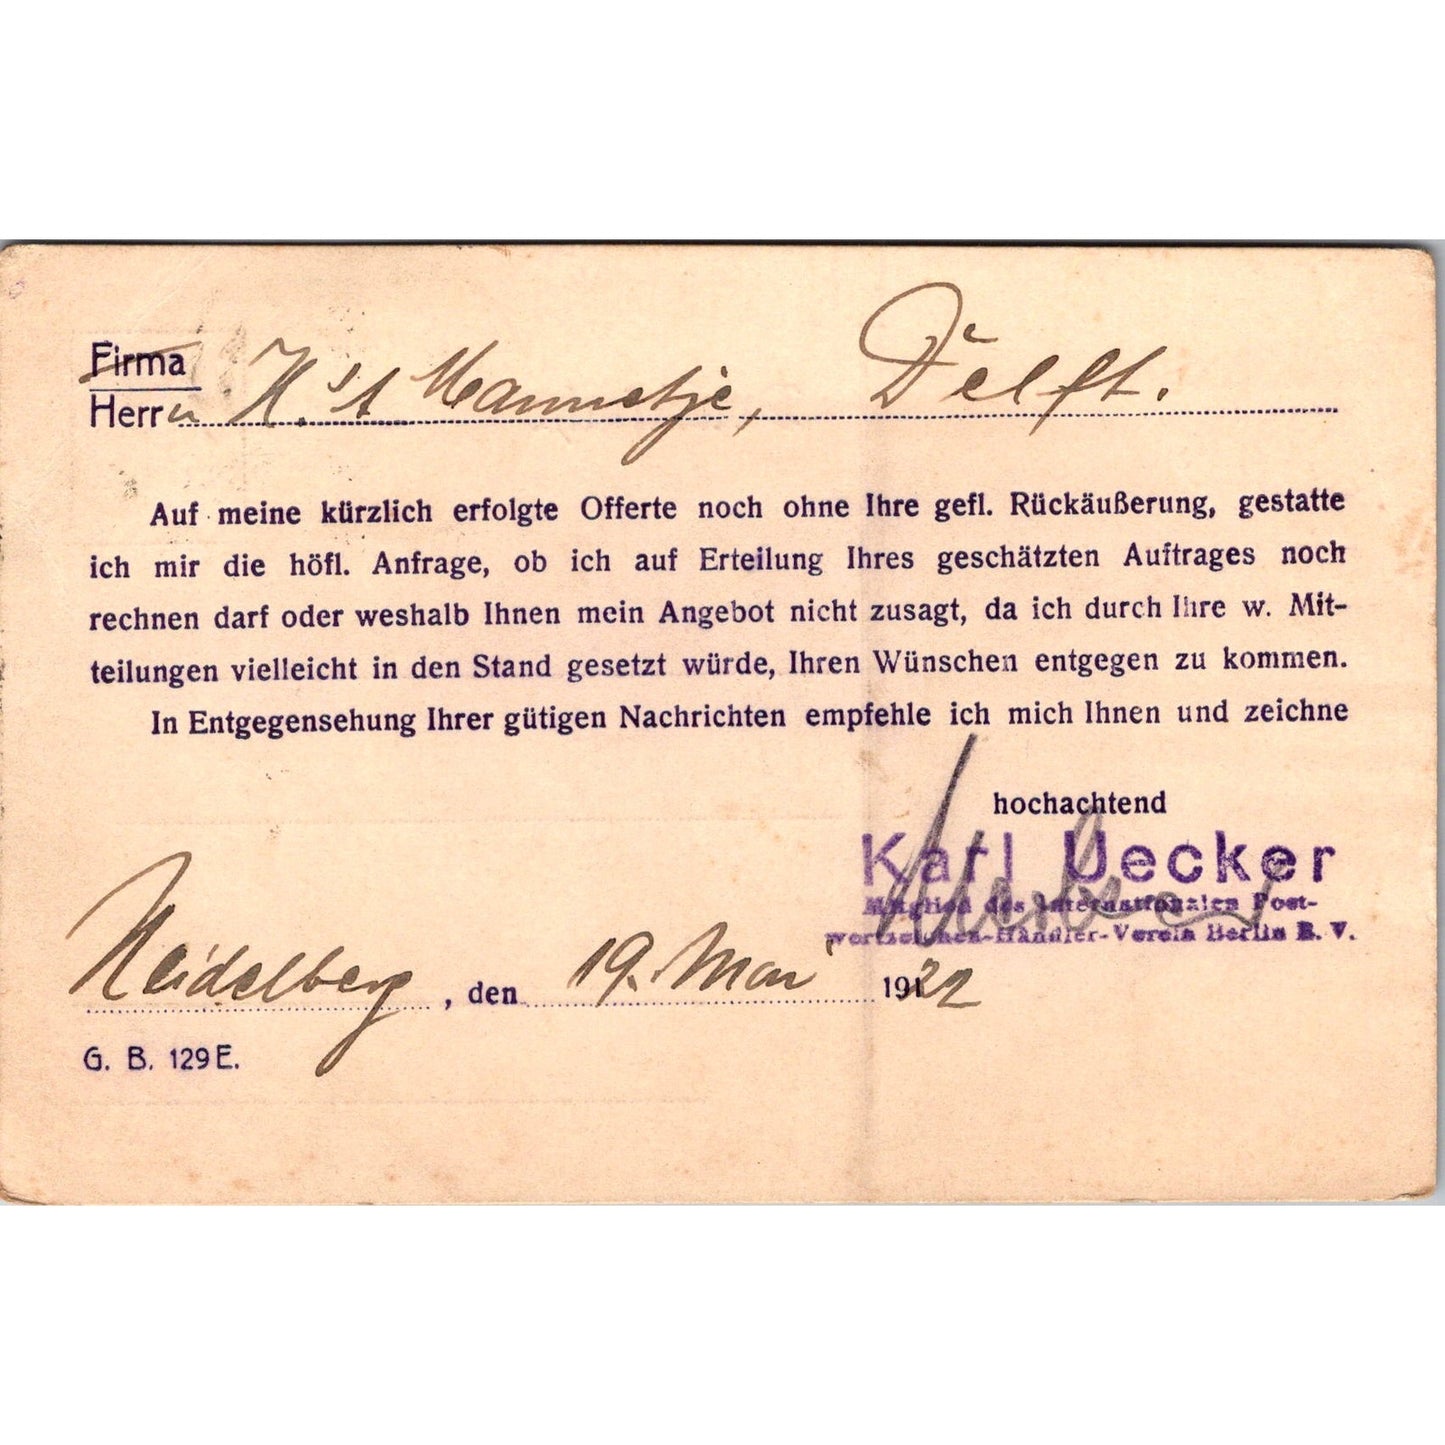 Firma
Herrn H. 't Mannetje, Delft.
Auf meine kürzlich erfolgte Offerte noch ohne Ihre gefl. Rückäußerung, gestatte
ich mir die höfl. Anfrage, ob ich auf Erteilung Ihres geschätzten Auftrages noch
rechnen darf oder weshalb Ihnen mein Angebot nicht zusagt, da ich durch Ihre w. Mit-
teilungen vielleicht in den Stand gesetzt würde, Ihren Wünschen entgegen zu kommen.
In Entgegensehung Ihrer gütigen Nachrichten empfehle ich mich Ihnen und zeichne
hochachtend
Karl Uecker
Mitglied des Internationalen Post-
wertzeichen-Händler-Verein Berlin E. V.
Heidelberg, den 19. Mai 1922
G. B. 129 E.